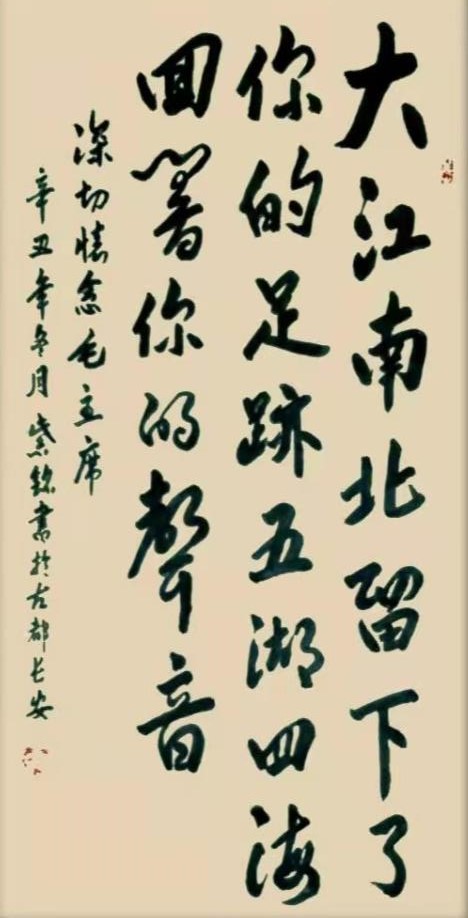 大江南北留下了
你的足跡五湖四海
回響你的聲音
深切懷念毛主席
辛丑年冬月紫銘書於古都长安